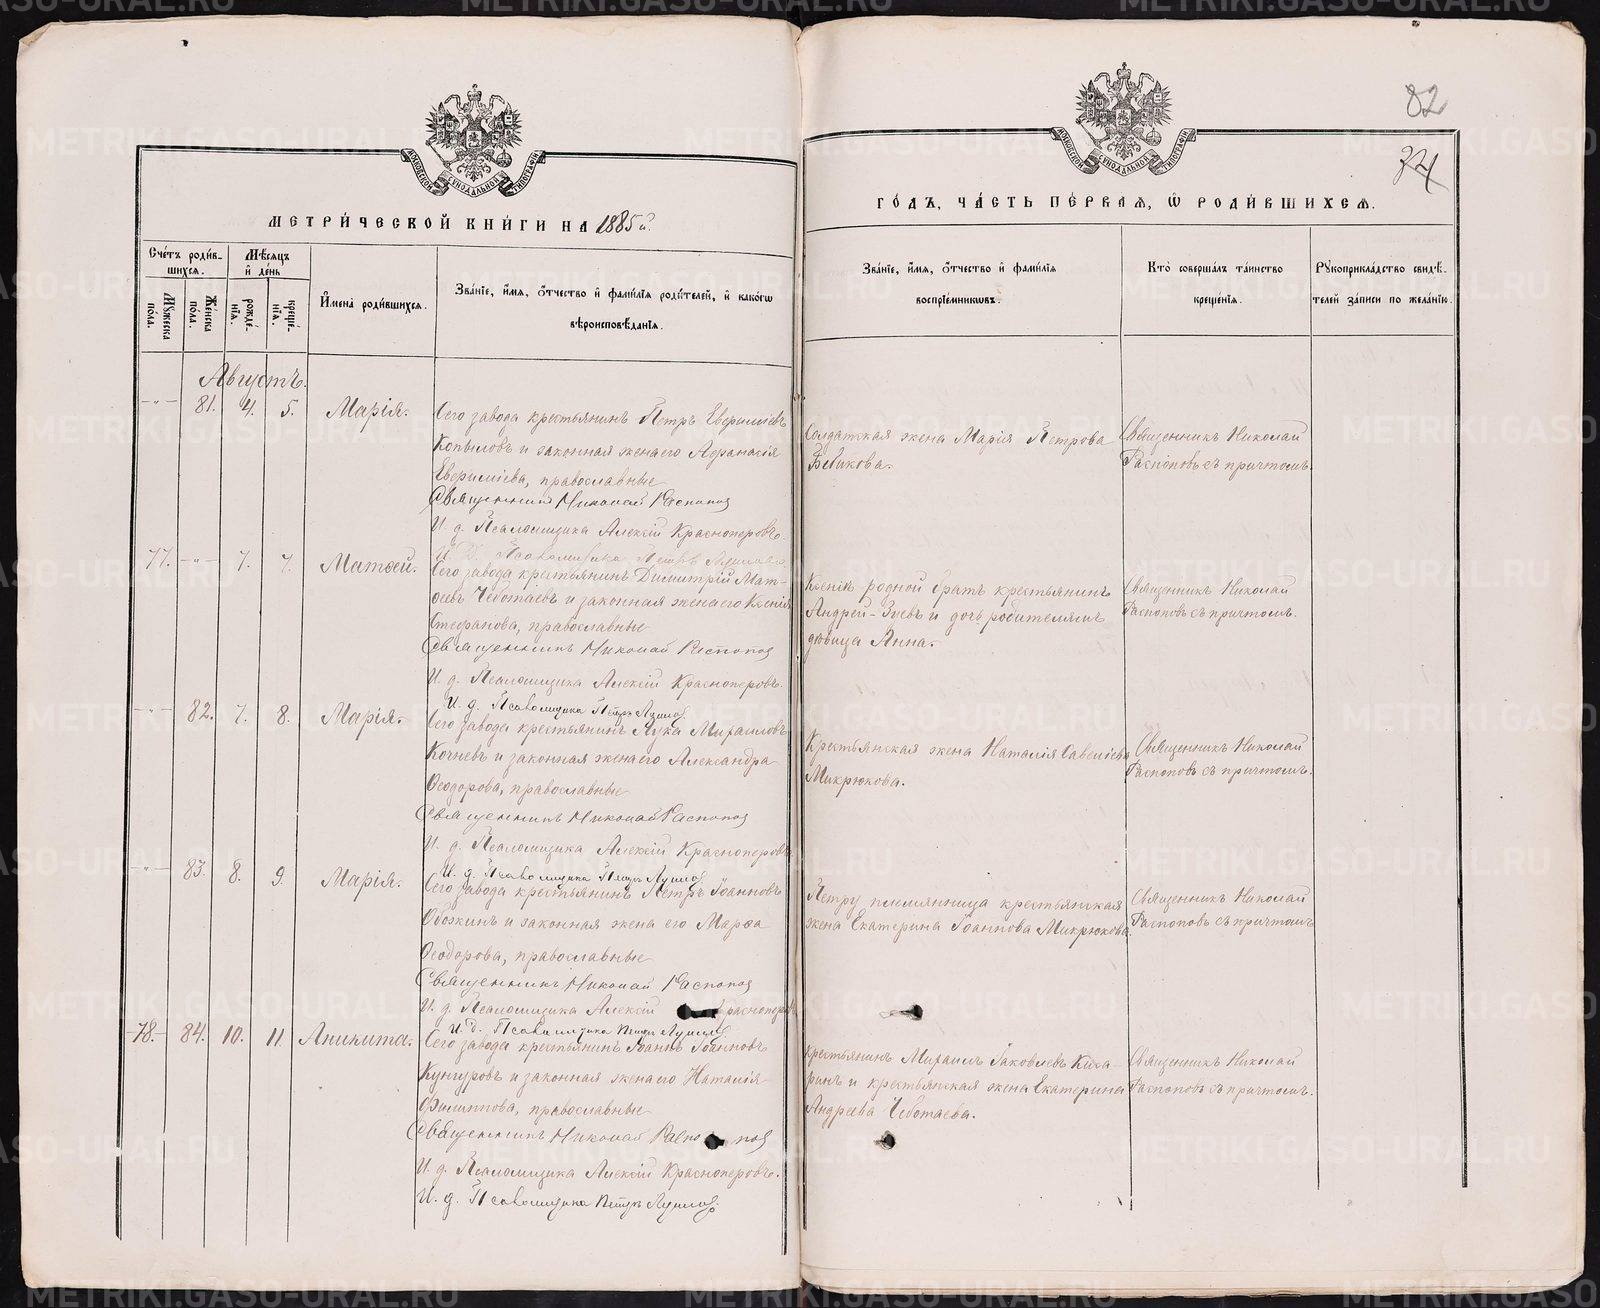 82
34
МЕТРИ́ЧЕСКОЙ КНИ́ГИ НА 1885й.
ГО́ДЪ, ЧА́СТЬ ПЕ́РВАЯ, Ѡ РОДИ́ВШИХСЯ.
Сче́тъ роди́вшихся.
Му́жеска по́ла.
Же́нска по́ла.
Мѣ́сяцъ и де́нь
рожде́нїя.
креще́нїя.
И҆мена̀ роди́вшихся.
Зва́нїе, и҆́мя, ѻ҆́тчество и҆ фами́лїя роди́телей, и҆ како́гѡ
вѣроисповѣ́данїя.
Зва́нїе, и҆́мя, ѻ҆́тчество и҆ фами́лїя
воспрїе́мниковъ.
Кто̀ соверша́лъ та́инство
креще́нїя.
Рꙋкоприкла́дство свидѣ́-
телей за́писи по жела́нїю.
Августъ.
-"- 81. 4. 5. Марія.
Сего завода крестьянинъ Петръ Евфиміевъ
Копыловъ и законная жена его Афанасія
Евфиміева, православные
Священникъ Николай Распопов
И. д. Псаломщика Алексій Красноперовъ.
Солдатская жена Марія Петрова
Бывикова.
Священникъ Николай
Распоповъ съ причтомъ.
И. д. Псаломщика Петръ
77. -"- 7. 7. Матѳей.
Сего завода крестьянинъ Димитрій Мат-
ѳеевъ Чеботаевъ и законная жена его Ксенія
Стефанова, православные
Священникъ Николай Распопов
И. д. Псаломщика Алексій Красноперовъ.
Ксеніи родной братъ крестьянинъ
Андрей Зуевъ и дочь родителямъ
дѣвица Анна.
Священникъ Николай
Распоповъ съ причтомъ.
И. д. Псаломщика Петръ
-"- 82. 7. 8. Марія.
Сего завода крестьянинъ Лука Михаиловъ
Кочневъ и законная жена его Александра
Ѳеодорова, православные
Священникъ Николай Распопов
И. д. Псаломщика Алексій Красноперовъ
Крестьянская жена Наталія Савеліева
Микрюкова.
Священникъ Николай
Распоповъ съ причтомъ.
И. д. Псаломщика Петръ
-"- 83. 8. 9. Марія.
Сего завода крестьянинъ Петръ Іоанновъ
Обожинъ и законная жена его Марѳа
Ѳеодорова, православные
Священникъ Николай Распопов
И. д. Псаломщика Алексій Красноперовъ
Петру племянница крестьянская
жена Екатерина Іоаннова Микрюкова.
Священникъ Николай
Распоповъ съ причтомъ
И. д. Псаломщика Петръ
78. 84. 10. 11. Аникита.
Сего завода крестьянинъ Іоаннъ Іоанновъ
Кунгуровъ и законная жена его Наталія
Филиппова, православные
Священникъ Николай Распопов
И. д. Псаломщика Алексій Красноперовъ.
И. д. Псаломщика Петръ
крестьянинъ Михаилъ Іаковлевъ
и крестьянская жена Екатерина
Андреева Чеботаева.
Священникъ Николай
Распоповъ съ причтомъ.
METRIKI.GASO-URAL.RU